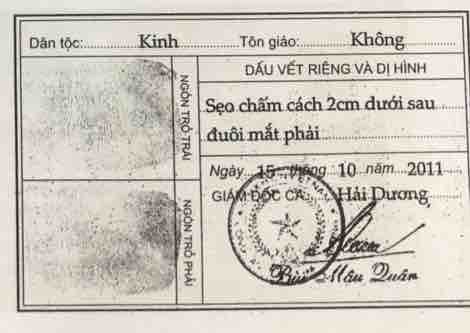 Dân tộc: Kinh Tôn giáo: Không
NGÓN TRỎ TRÁI
DẤU VẾT RIÊNG VÀ DỊ HÌNH
Sẹo chấm cách 2cm dưới sau
đuôi mắt phải
Ngày 15 tháng 10 năm 2011
GIÁM ĐỐC CA Hải Dương
NGÓN TRỎ PHẢI
Mậu Quân